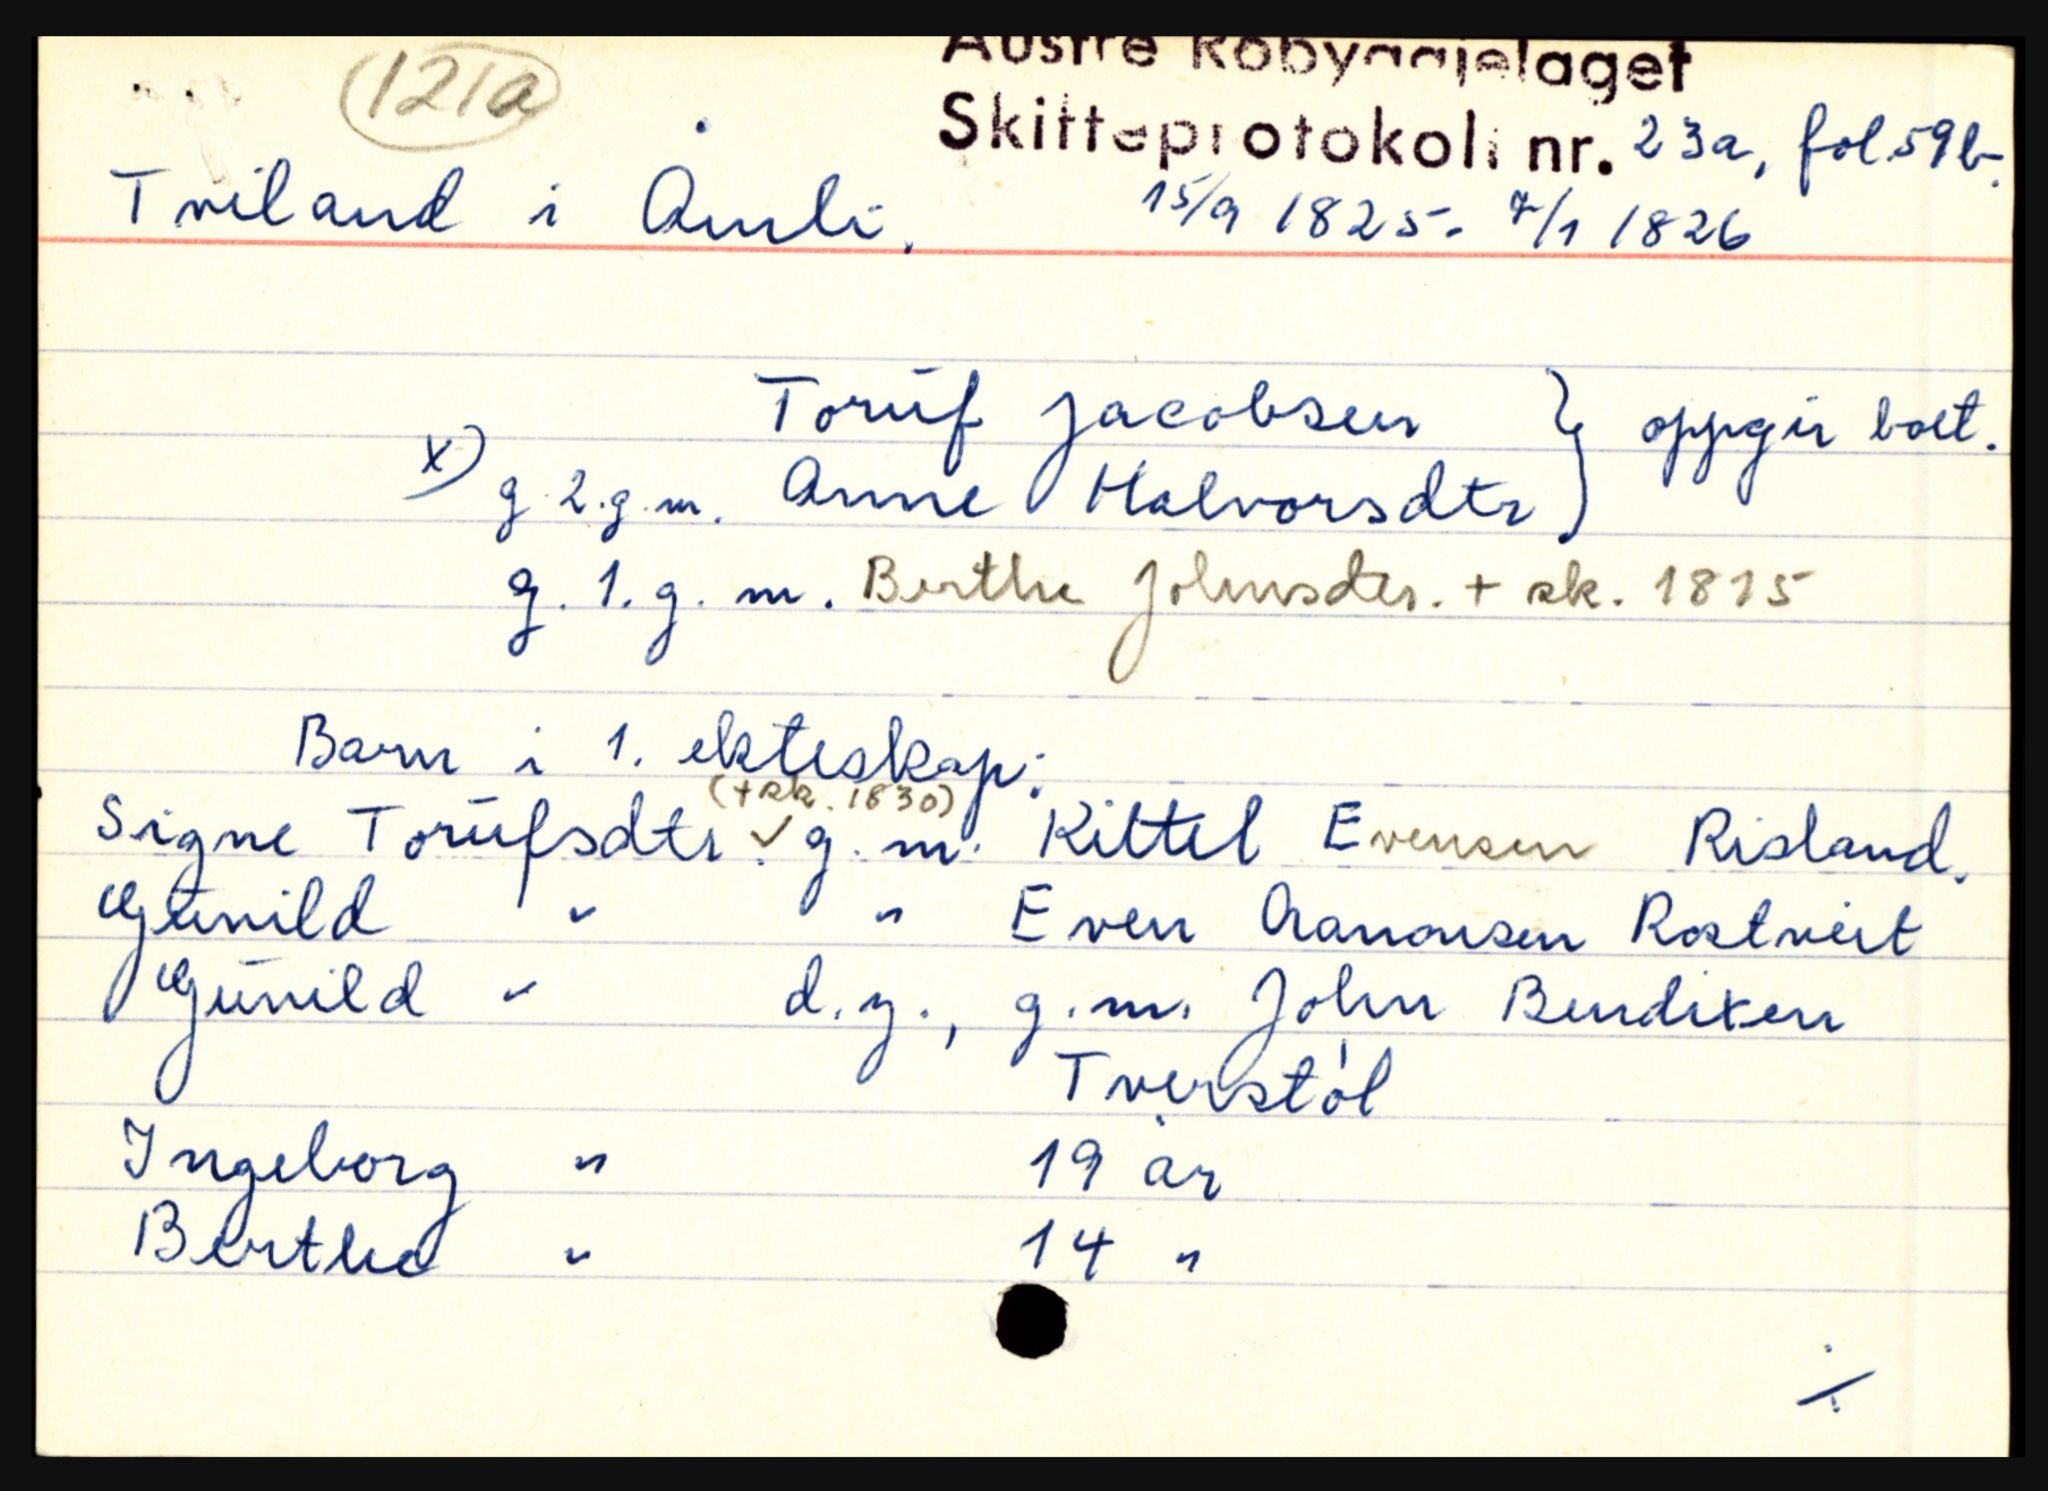 121a
Austre Robyggjelaget
Skifteprotokoll nr. 23a, fol 59b.
Tviland i Åmli.
15/9 1825 - 7/1 1826
Torŭf Jacobsen } oppgir boet.
x) g 2. g. m. Anne Halvorsdtr
g. 1. g. m. Berthe Johnsdtr. + sk. 1815
Barn i 1. ekteskap:
(+ sk. 1830)
Signe Torŭfsdtr. ✓ g. m. Kittel Evensen Risland.
Gŭnild " " Even Aanonsen Rostveit
Gŭnild " d. y., g. m. John Bendixen
Tverstøl
Ingeborg " 19 år
Berthe " 14 "
./.